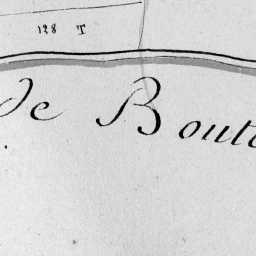 128 T
de Bout